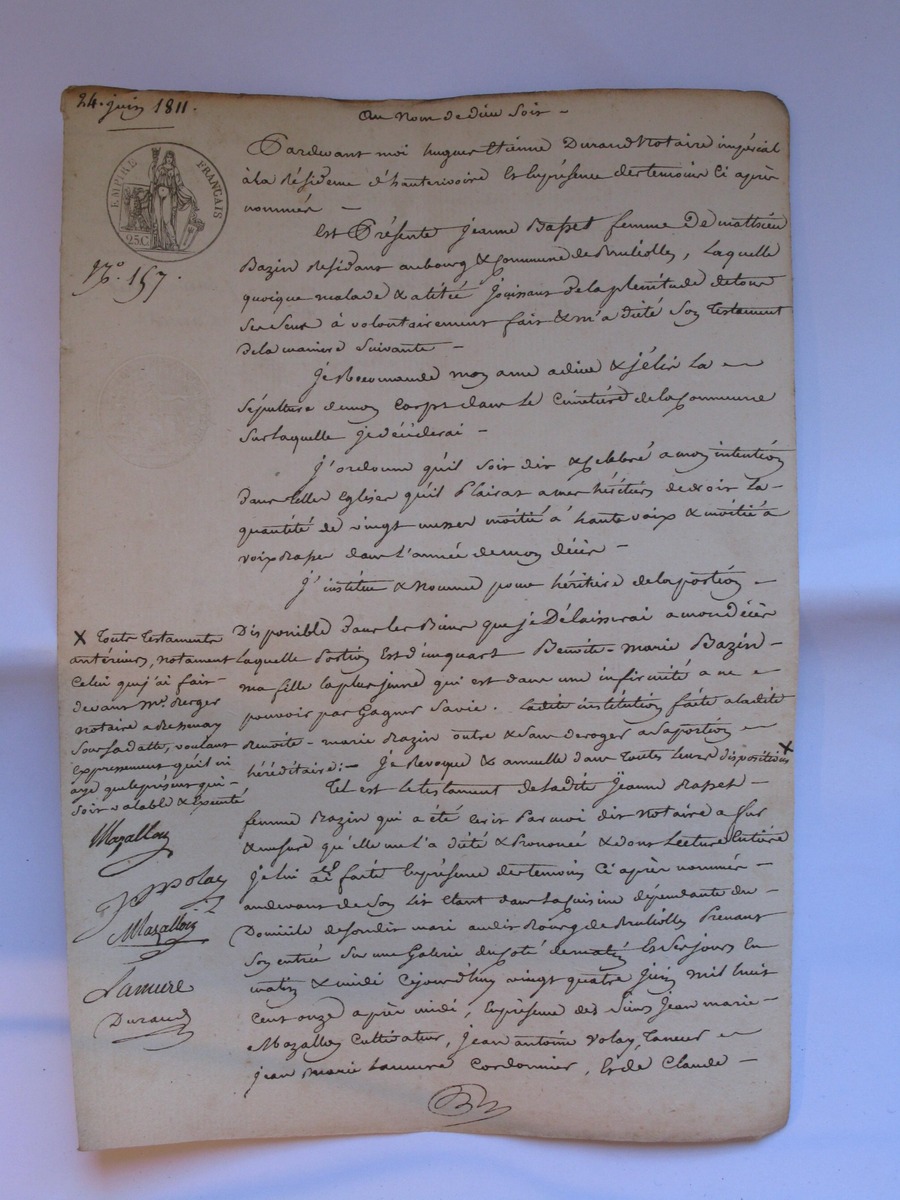 24. juin 1811.
Au Nom de dieu soit
EMPIRE FRANÇAIS
25.C
N.º 157.
Pardevant moi hugues Etienne Durand Notaire impérial
à la Résidence d'hauterivoire Et En présence des temoins Ci après
nommés
Est Présente Jeanne Basset femme De mathieu
Bazin Residant au bourg & Commune de Bruliolles, Laquelle
quoique malade & alitée Jouissant de la plenitude de tous
Ses Sens à volontairement fait & m'a dicté Son Testament
De la maniere Suivante
Je Recommande mon ame a dieu & j'élis la
Sépulture de mon Corps dans le Cimetière de la Commune
Sur laquelle je décèderai
J'ordonne qu'il Soit dit & Celebré a mon intention
dans telles Eglises qu'il Plairat a mes héritiers de droit la
quantité de vingt messes moitié à haute voix & moitié a
voix Basse dans l'année de mon décès
J'institue & Nomme pour héritiere de la portion
Disponible dans les Biens que je Délaisserai a mon décès
Laquelle Portion Est d'un quart Benoite-marie Bazin
ma fille la plus jeune qui est dans une infirmité a ne
pouvoir pas Gagner Sa vie. Ladite institution faite a ladite
Benoite-marie Bazin outre & Sans deroger a Sa portion
héréditaire:- Je Revoque & annulle dans Toutes leurs dispositions X
Tel est le testament de ladite Jeanne Basset
femme Bazin qui a été écrit Par moi dit Notaire a fur
& mesure qu'elle me l'a dicté & Prononcé & dont Lecture Entière
je lui ai faite En présence des temoins Ci après nommés
au devant de Son lit Etant dans la Cuisine dépendante du
Domicile de Son dit mari au dit Bourg de Brulliolles Prenant
Son entrée Sur une Galerie du Coté de matin Et Ses jours En
matin & midi Cejourd'huy vingt quatre juin mil huit
Cent onze après midi, En présence des Sieurs Jean marie
Mazallon Cultivateur, Jean antoine Volay, Taneur
Jean Marie Lamure Cordonnier, Et de Claude
X Touts Testaments
antérieurs, notament
Celui que j'ai fait
devant Mr. Berger
notaire a Bessenay
Sous Sa datte, voulant
Expressement qu'il n'i
aye que le présent qui
Soit valable & Executé
Mazallon
Mazallon
Lamure
Durand